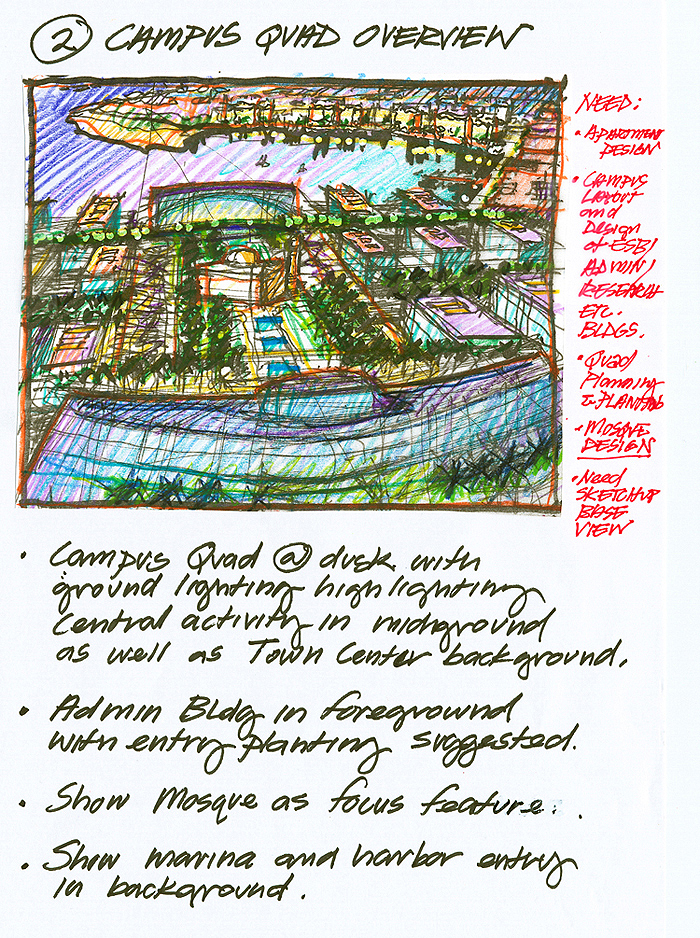 2 CAMPUS QUAD OVERVIEW
NEED:
• APARTMENT
DESIGN
• CAMPUS
LAYOUT
and
Design
of ESB/
ADMIN/
RESEARCH
ETC.
BLDGS.
• Quad
Planning
& PLANTING
• MOSQUE
DESIGN
• Need
SKETCHUP
BASE
VIEW
• Campus Quad @ dusk with
ground lighting highlighting
central activity in midground
as well as Town Center background.
• Admin Bldg in foreground
with entry planting suggested.
• Show Mosque as focus feature.
• Show marina and harbor entry
in background.